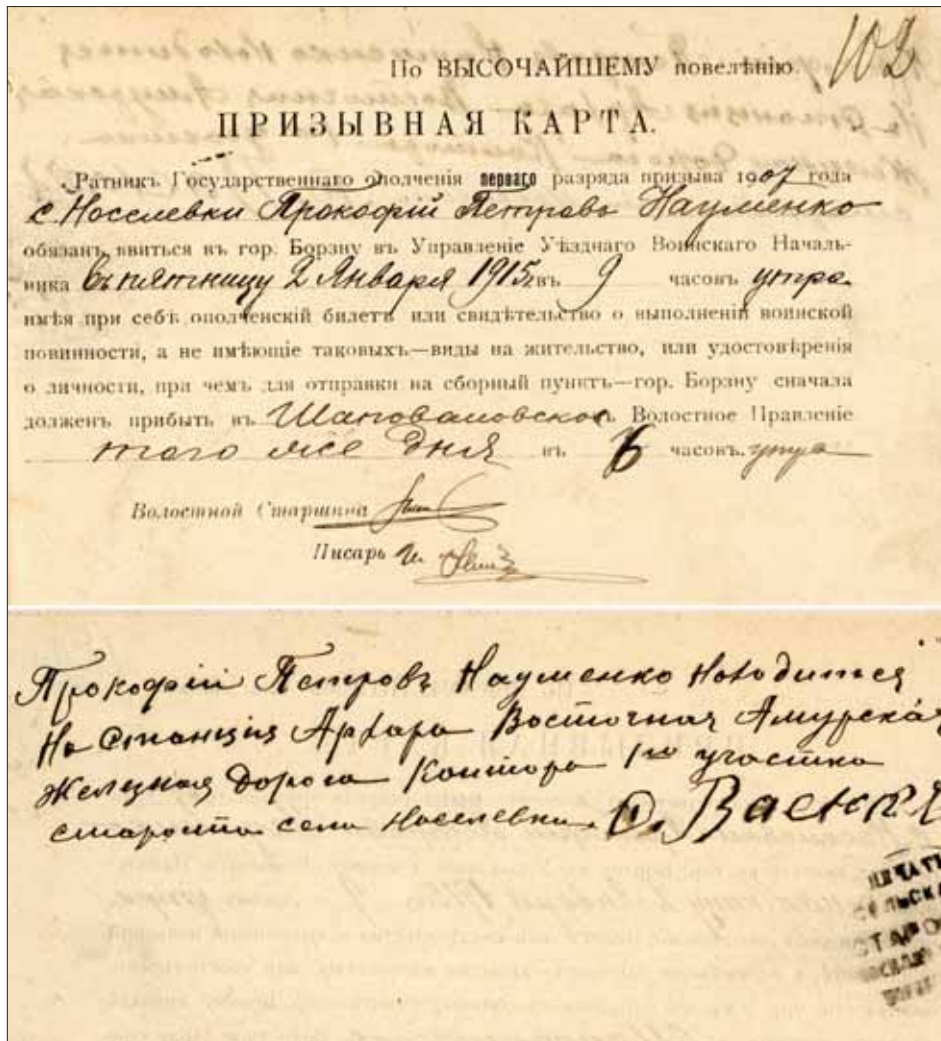 По ВЫСОЧАЙШЕМУ повелѣнію. 102
ПРИЗЫВНАЯ КАРТА.
Ратникъ Государственнаго ополченія перваго разряда призыва 1907 года
с. Носелевки Прокофій Петровъ Науменко
обязанъ явиться въ гор. Борзну въ Управленіе Уѣзднаго Воинскаго Началь-
ника въ пятницу 2 Января 1915 г. въ 9 часовъ утра
имѣя при себѣ ополченскій билетъ или свидѣтельство о выполненіи воинской
повинности, а не имѣющіе таковыхъ—виды на жительство, или удостовѣренія
о личности, при чемъ для отправки на сборный пунктъ—гор. Борзну сначала
долженъ прибыть въ Шаповаловское Волостное Правленіе
того же дня въ 6 часовъ утра
Волостной Старшина
Писарь
Прокофій Петровъ Науменко Находится
На Станція Архара Восточная Амурская
Железная Дорога Контора 1го участка
староста села Носелевки
ПЕЧАТЬ
СЕЛЬСКА
СТАРО